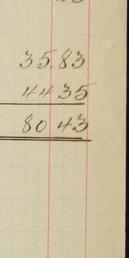 35.83
44 35
80 43